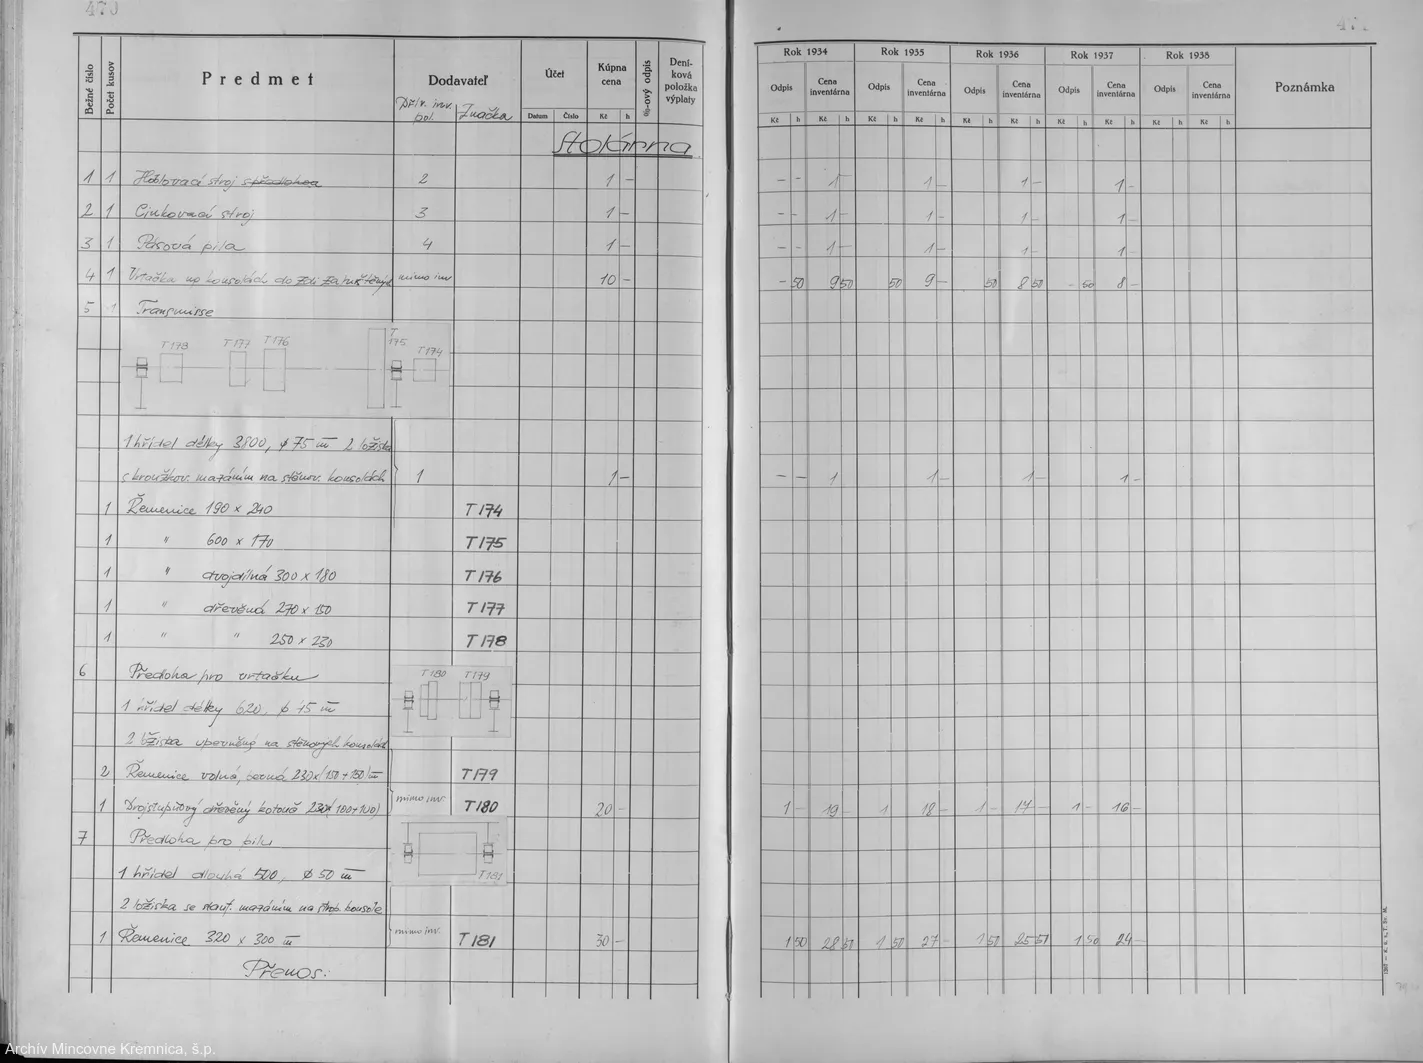 470
Bežné číslo
Počet kusov
Predmet
Dodavateľ
Přív. inv. pol.
Značka
Účet
Datum
Číslo
Kúpna cena
Kč h
%-ový odpis
Deníková položka výplaty
1 1 Hoblovací stroj s předlohou 2 1 –
2 1 Cinkovací stroj 3 1 –
3 1 Pásová pila 4 1 –
4 1 Vrtačka na konsolách do zdi mimo inv. 10 –
5 1 Transmisse
T178 T177 T176 T175 T174
1 hřídel délky 3800, ϕ 75 m/m 2 ložiska
s kroužkov. mazáním na stěnov. konsolách 1 1 –
1 Řemenice 190 × 240 T174
1 " 600 × 170 T175
1 " dvojdílná 300 × 180 T176
1 " dřevěná 270 × 150 T177
1 " " 250 × 230 T178
6 Předloha pro vrtačku
T180 T179
1 hřídel délky 620, ϕ 45 m/m
2 ložiska upevněný na stěnových konsolách
2 Řemenice volná, pevná 230 × (150 + 150) m/m T179
1 Dvojstupňový dřevěný kotouč 230 × (100+100) mimo inv. T180 20 –
7 Předloha pro pilu
1 hřídel dlouhá 500, ϕ 50 m/m
T181
2 ložiska se stauf. mazáním na strop. konsole
1 Řemenice 320 × 300 m/m mimo inv. T181 30 –
Přenos:
471
Rok 1934 Rok 1935 Rok 1936 Rok 1937 Rok 1938
Odpis Cena inventárna Odpis Cena inventárna Odpis Cena inventárna Odpis Cena inventárna
Poznámka
Kč h Kč h Kč h Kč h Kč h Kč h Kč h Kč h Kč h Kč h
– – 1 – 1 – 1 – 1 –
– – 1 – 1 – 1 – 1 –
– – 1 – 1 – 1 – 1 –
– 50 9 50 50 9 – 50 8 50 – 50 8 –
– – 1 1 – 1 – 1 –
1 – 19 – 1 – 18 – 1 – 17 – 1 – 16 –
1 50 28 50 1 50 27 – 1 50 25 50 1 50 24 –
Archív Mincovne Kremnica, š.p.